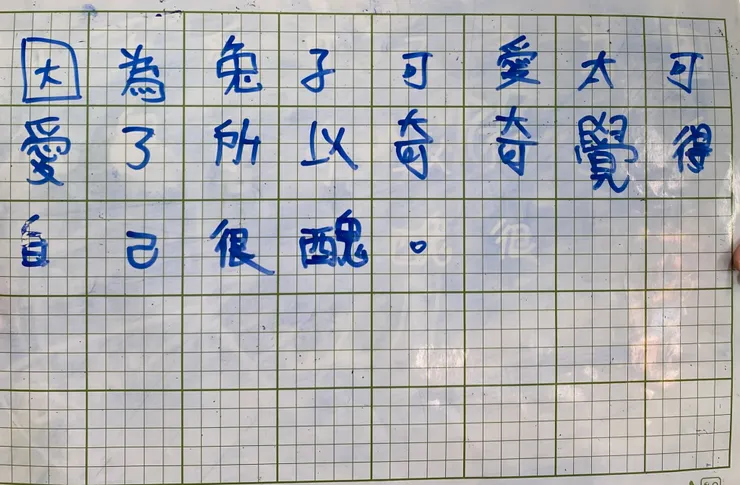 因為兔子可愛太可
愛了所以奇奇覺得
自己很醜。